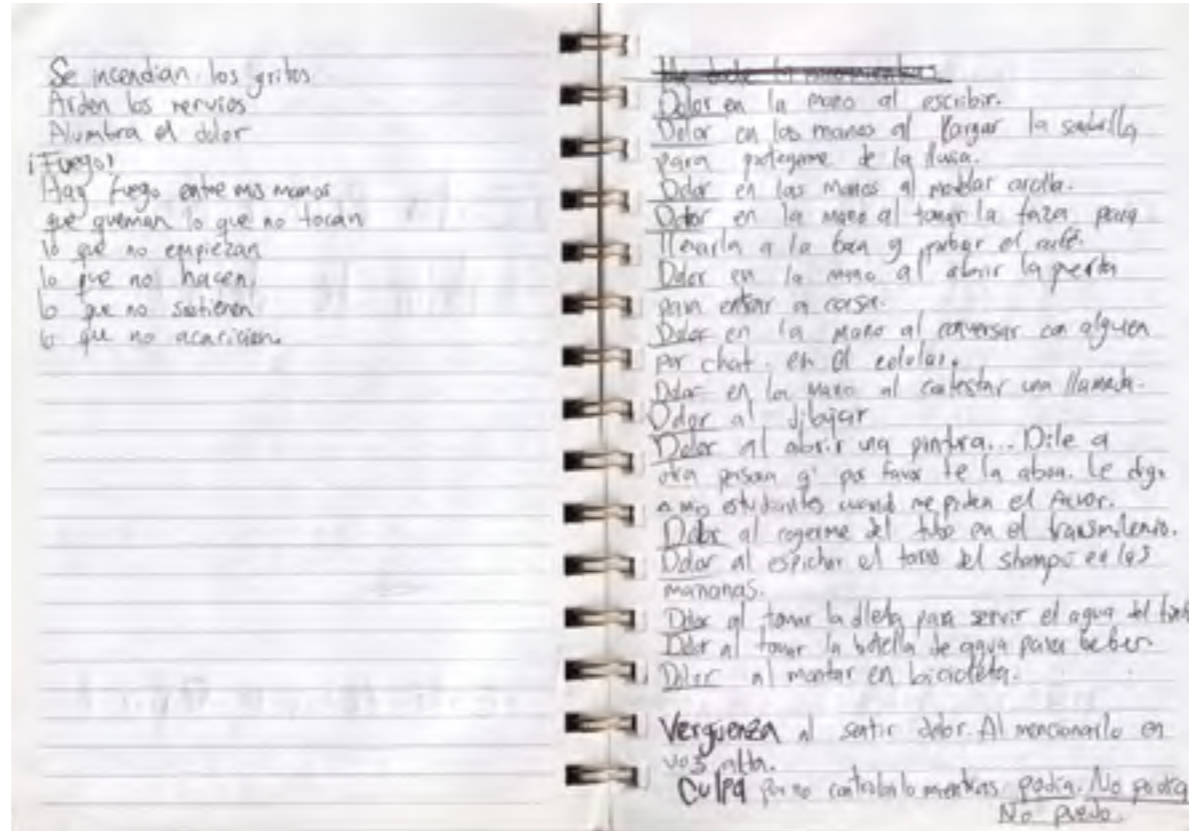 Se incendian los gritos
Arden los nervios
Alumbra el dolor
¡Fuego!
Hay fuego entre mis manos
que queman lo que no tocan
lo que no empiezan
lo que no hacen,
lo que no sostienen
lo que no acarician.
Dolor en la mano al escribir.
Dolor en las manos al cargar la sombrilla
para protegerme de la lluvia.
Dolor en las manos al modelar arcilla.
Dolor en la mano al tomar la taza para
llevarla a la boca y probar el café.
Dolor en la mano al abrir la puerta
para entrar a casa.
Dolor en la mano al conversar con alguien
por chat, en el celular.
Dolor en la mano al contestar una llamada.
Dolor al dibujar
Dolor al abrir una pintura... Dile a
otra persona q' por favor te la abra. Le digo
a mis estudiantes cuando me piden el favor.
Dolor al cogerme del tubo en el transmilenio.
Dolor al espichar el tarro del shampú en las
mañanas.
Dolor al tomar la olleta para servir el agua del tinto
Dolor al tomar la botella de agua para beber
Dolor al montar en bicicleta.
Vergüenza al sentir dolor. Al mencionarlo en
voz alta.
Culpa por no controlarlo mientras podía. No podía
No puedo.